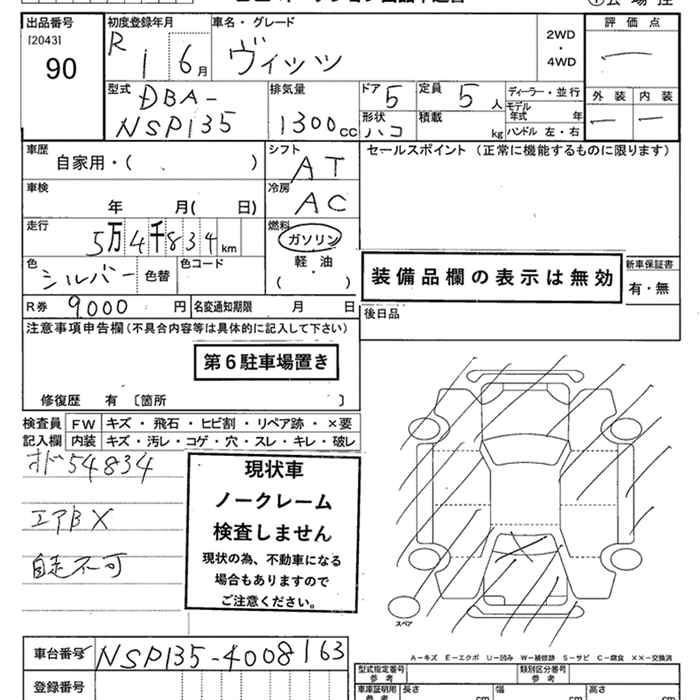 出品番号 初度登録年月 車名・グレード 評価点
[2043] R 1 6月 ヴィッツ 2WD・4WD
90
型式 DBA-NSP135 排気量 1300cc ドア 5 定員 5人 ディーラー・並行 外装 内装
形状 ハコ 積載 kg モデル年式 年 ハンドル 左・右
車歴 自家用・( ) シフト AT セールスポイント (正常に機能するものに限ります)
車検 年 月( 日) 冷房 AC
走行 5万4千834km 燃料 ガソリン
軽・油
( )
色 シルバー 色替 色コード
装備品欄の表示は無効 新車保証書
有・無
R券 9,000円 名変通知期限 月 日 後日品
注意事項申告欄(不具合内容等は具体的に記入して下さい)
第6駐車場置き
修復歴 有 〔箇所 〕
検査員記入欄 FW キズ・飛石・ヒビ割・リペア跡・×要
内装 キズ・汚レ・コゲ・穴・スレ・キレ・破レ
オド54834
エアB X
自走不可
現状車
ノークレーム
検査しません
現状の為、不動車になる
場合もありますので
ご注意ください。
スペア
A−キズ E−エクボ U−凹み W−補修跡 S−サビ C−腐食 X−交換済
車台番号 NSP135-4008163
登録番号
型式指定番号 参考 類別区分番号 参考
車庫証明用 参考 長さ cm 幅 cm 高さ cm